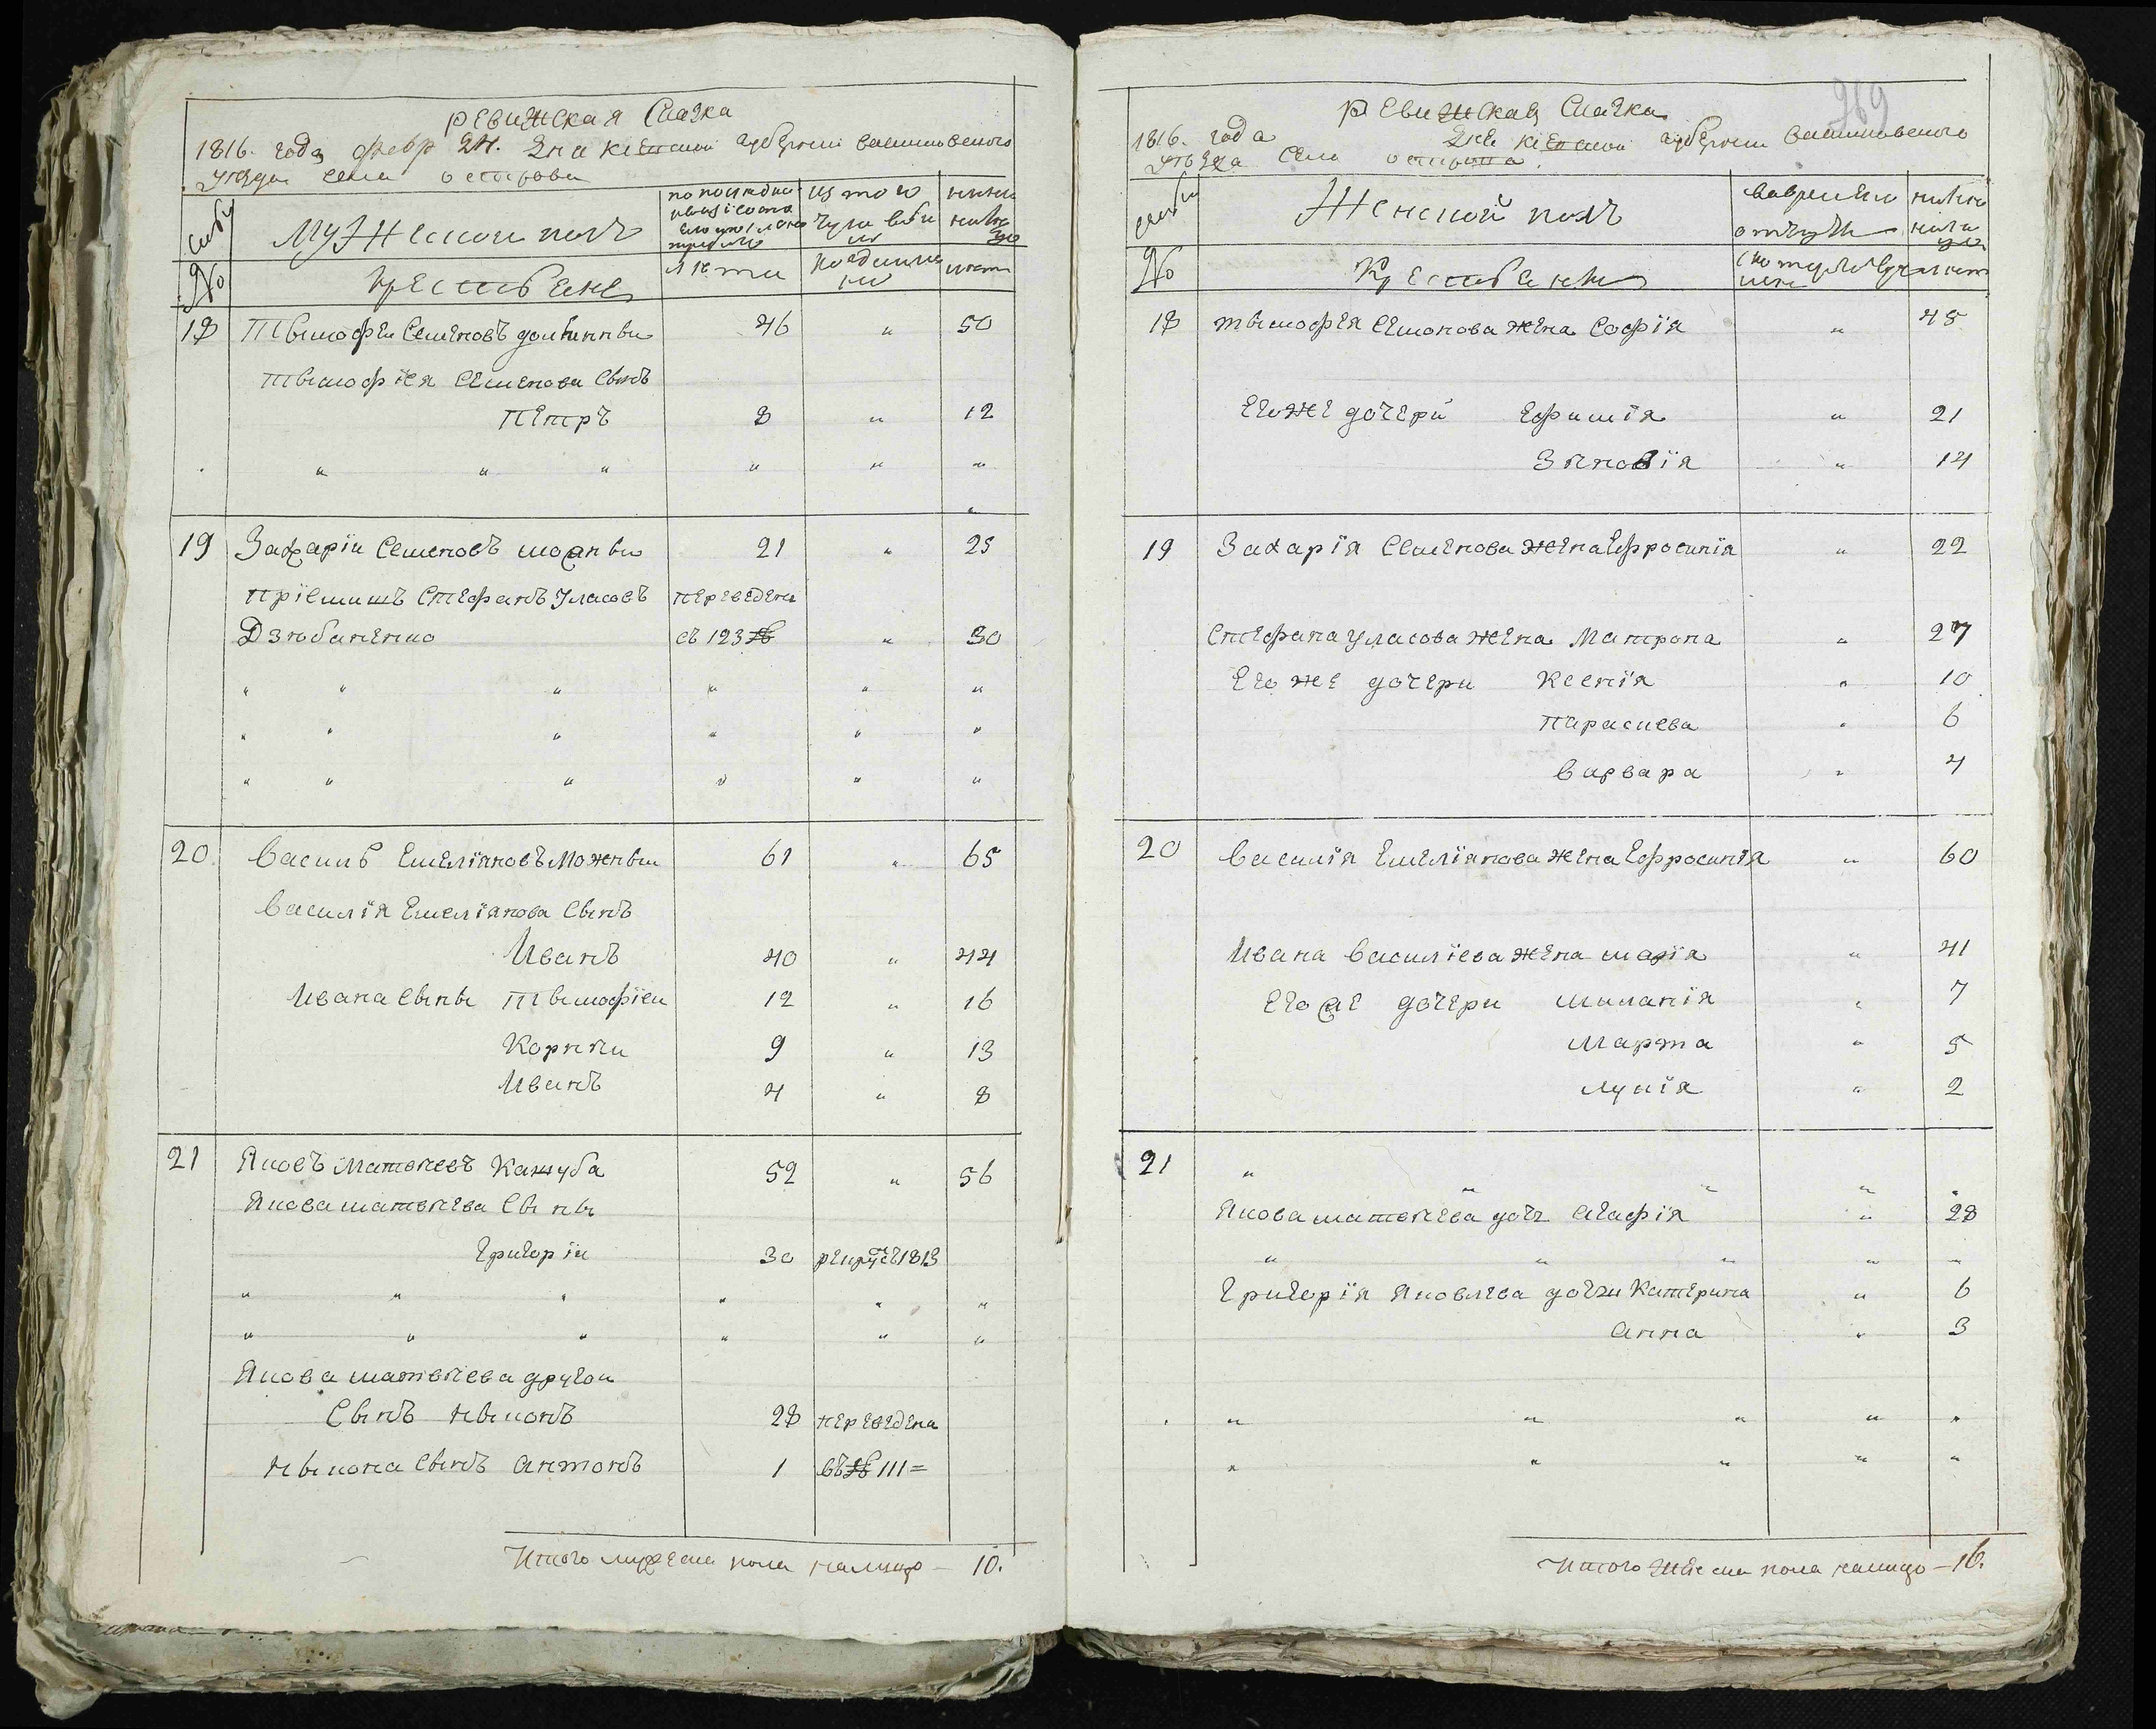 ревижская Сказка
1816. года февр 24. Дня Киевской губернии васильковского
уезда села острова
семьи
Мужеской полъ
по последней ревизіи состояло
изъ того числа выбыло
ныне на лицо
№
крестьяне
лета
когда именно
лета
18 Тымофей Семеновъ долынный 46 " 50
Тымофіея Семенова Сынъ
Петръ 8 " 12
" " " " " "
19 Захарій Семеновъ 21 " 25
пріемышъ Стефанъ Уласовъ переведенъ
Дзюбаненко съ 123 № " 30
" " " " " "
" " " " " "
" " " " " "
20 Василь Емеліяновъ Можный 61 " 65
Василія Емеліянова Сынъ
Иванъ 40 " 44
Ивана Сыны Тымофіей 12 " 16
Корній 9 " 13
Иванъ 4 " 8
21 Яковъ Матвеевъ Кажуба 52 " 56
Якова матвеева Сыны
Григорій 30 рекрутъ 1813
" " " " " "
" " " " " "
Якова матвеева другой
Сынъ Ныконъ 28 переведена
Ныкона Сынъ Антонъ 1 въ № 111=
Итого мужеска пола налицо – 10.
269
ревижская Сказка
1816. года Дня Киевской губернии васильковского
уезда Села острова
семьи
Женской полъ
во временной отлучке
ныне на лицо
№
Крестьянки
лета
18 тымофея Семонова жена Софія " 45
Егоже дочери Ефимія " 21
Зеновія " 14
19 Захарія Семенова жена Ефросинія " 22
Стефана уласова жена Матрона " 27
Его же дочери Ксенія " 10
Параскева " 6
Варвара " 4
20 Василія Емеліянова жена Ефросинія " 60
Ивана Василіева жена марія " 41
Его же дочери Миланія " 7
Марта " 5
Лукія " 2
21 " " " " "
Якова матвеева дочъ Агафія " 28
" " " " "
Григорія Яковлева дочки Катерина " 6
Анна " 3
" " " " "
" " " " "
Итого женска пола налицо – 16.